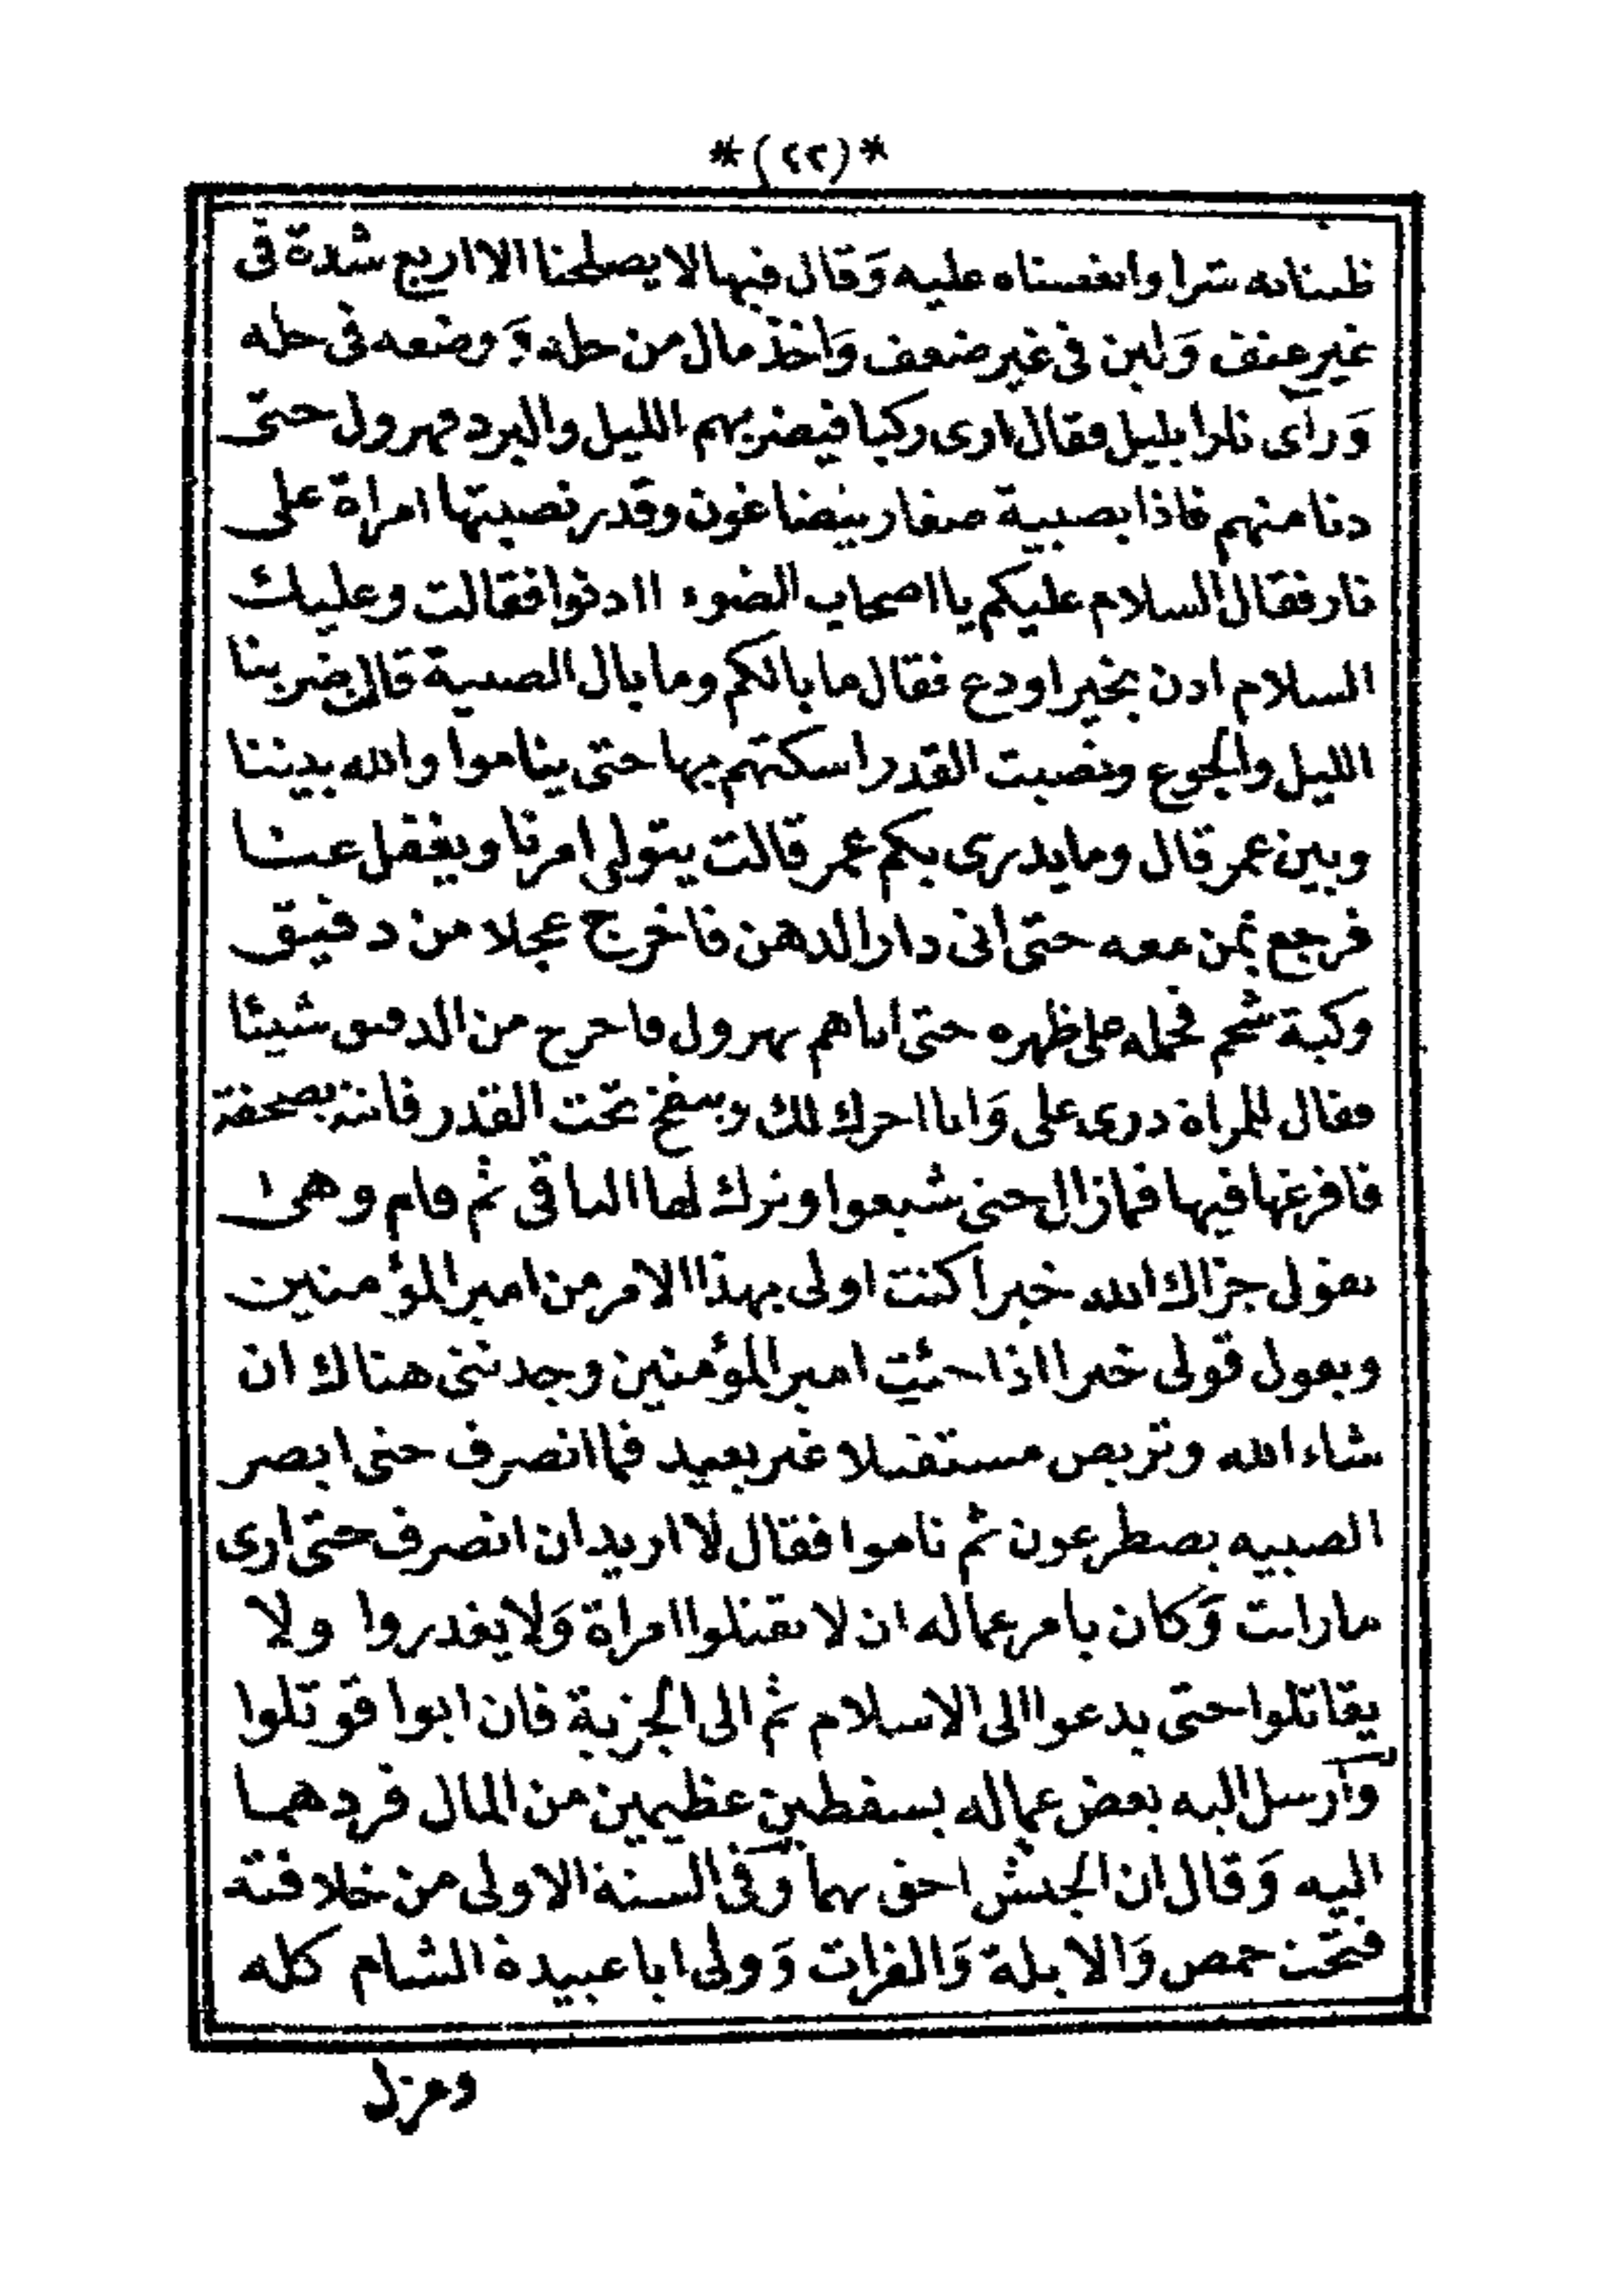 *(٢٤)*
ظنناه به شرا وابغضناه عليه وَقال فيها لا يصلحنا الا اربع شدة فى
غير عنف وَلين فى غير ضعف وَاخذ مال من حله وَ وضعه فى حله
وَرآى نارا بليل فقال ارى ركبا فيضر بهم الليل والبرد فهرول حتى
دنا منهم فاذا بصبية صغار يتضاغون وقدر نصبتها امراة على
نار فقال السلام عليكم يا اصحاب الضوء اادنوا فقالت وعليك
السلام ادن بخير اودع فقال ما بالكم وما بال الصبية قال يضر بنا
الليل والجوع ونصبت القدر اسكتهم بها حتى يناموا والله بيننا
وبين عمر قال وما يدرى بكم عمر قالت يتولى امرنا ويغفل عنا
فرجع بمن معه حتى اتى دار الدهن فاخرج عجلا من دقيق
وكبة شحم فحمله على ظهره حتى اتاهم يهرول فاخرج من الدقيق شيئا
فقال للمراة درى على وَانا احرك لك وينفخ تحت القدر فاتته بصحفة
فافرغها فيها فما زال حتى شبعوا وترك لها الباقى ثم قام وهى
تقول جزاك الله خيرا كنت اولى بهذا الامر من امير المؤمنين
ويقول قولى خيرا اذا جئت امير المؤمنين وجدتنى هناك ان
شاء الله وتربص مستقبلا غير بعيد فما انصرف حتى ابصر
الصبيه يصطرعون ثم ناموا فقال لا اريد ان انصرف حتى ارى
ما رايت وَكان يامر عماله ان لا يقتلوا امراة وَلا يغدروا ولا
يقاتلوا حتى يدعوا الى الاسلام ثم الى الجزية فان ابوا قوتلوا
وَارسل اليه بعض عماله بسفطين عظيمين من المال فردهما
اليه وَقال ان الجيش احق بهما وَفى السنة الاولى من خلافته
فتحت حمص وَالابلة وَالفرات وَولى ابا عبيدة الشام كله
وعزل